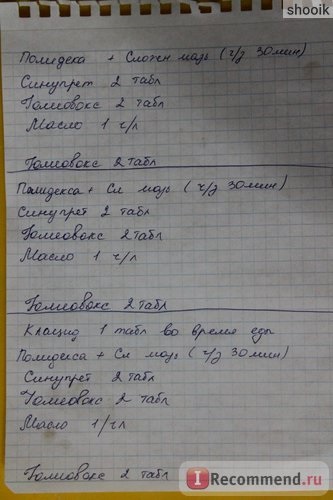 shooik
Полидекса + Сложн мазь (ч/з 30 мин)
Синупрет 2 табл
Гомеовокс 2 табл
Масло 1 ч/л
Гомеовокс 2 табл
Полидекса + Сл мазь (ч/з 30 мин)
Синупрет 2 табл
Гомеовокс 2 табл
Масло 1 ч/л
Гомеовокс 2 табл
Клацид 1 табл во время еды
Полидекса + Сл мазь (ч/з 30 мин)
Синупрет 2 табл
Гомеовокс 2 табл
Масло 1 ч/л
Гомеовокс 2 табл
I Recommend.ru